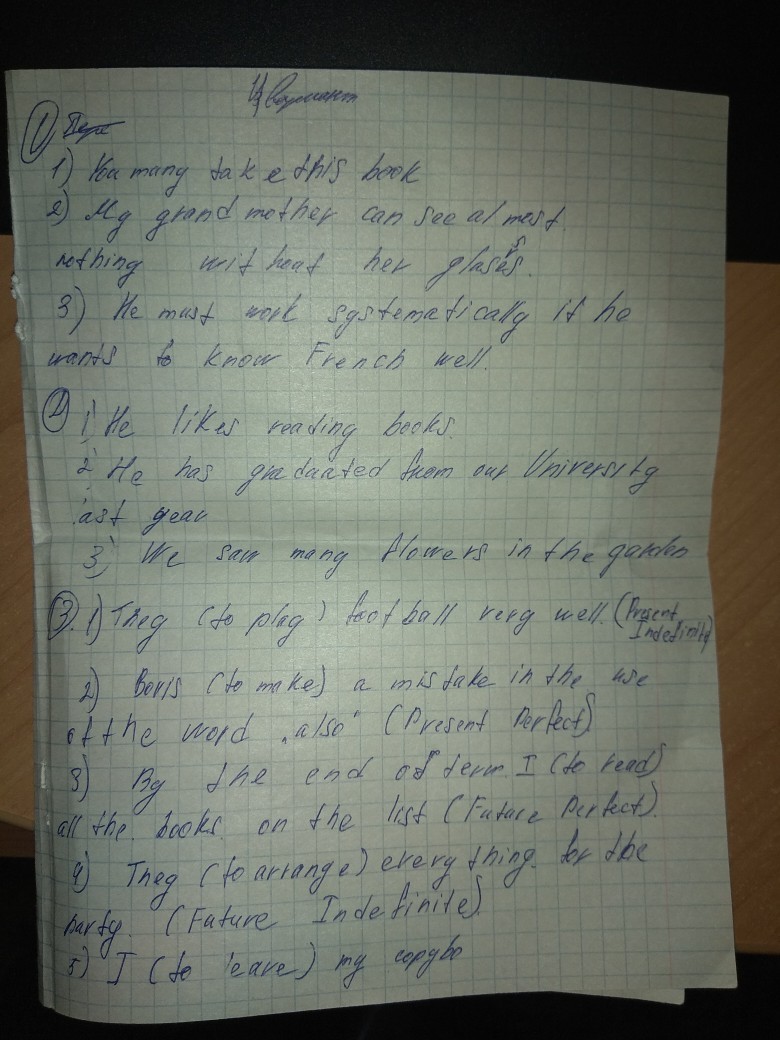 Вариант
①
1) You many take this book
2) My grand mother can see almost
nothing without her glasses.
3) He must work systematically if he
wants to know French well.
② 1) He likes reading books.
2) He has graduated from our University
last year
3) We saw many flowers in the garden
③. 1) They (to play) football very well. (Present
Indefinite)
2) Boris (to make) a mistake in the use
of the word „also" (Present Perfect)
3) By the end of term I (to read)
all the books on the list (Future Perfect).
4) They (to arrange) everything for the
party. (Future Indefinite)
5) I (to leave) my copybo